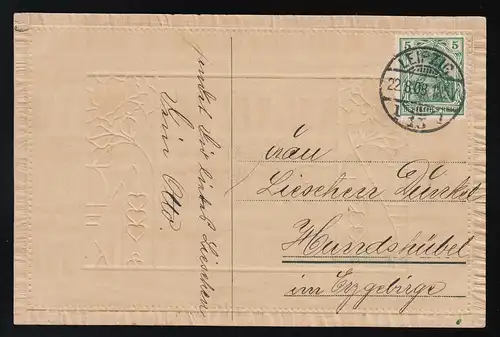 sendet Dir liebes Lieschen
Dein Otto.
5 5
LEIPZIG
22.8.08
13
Frau
Lieschen Dunkel
Hundshübel
im Erzgebirge